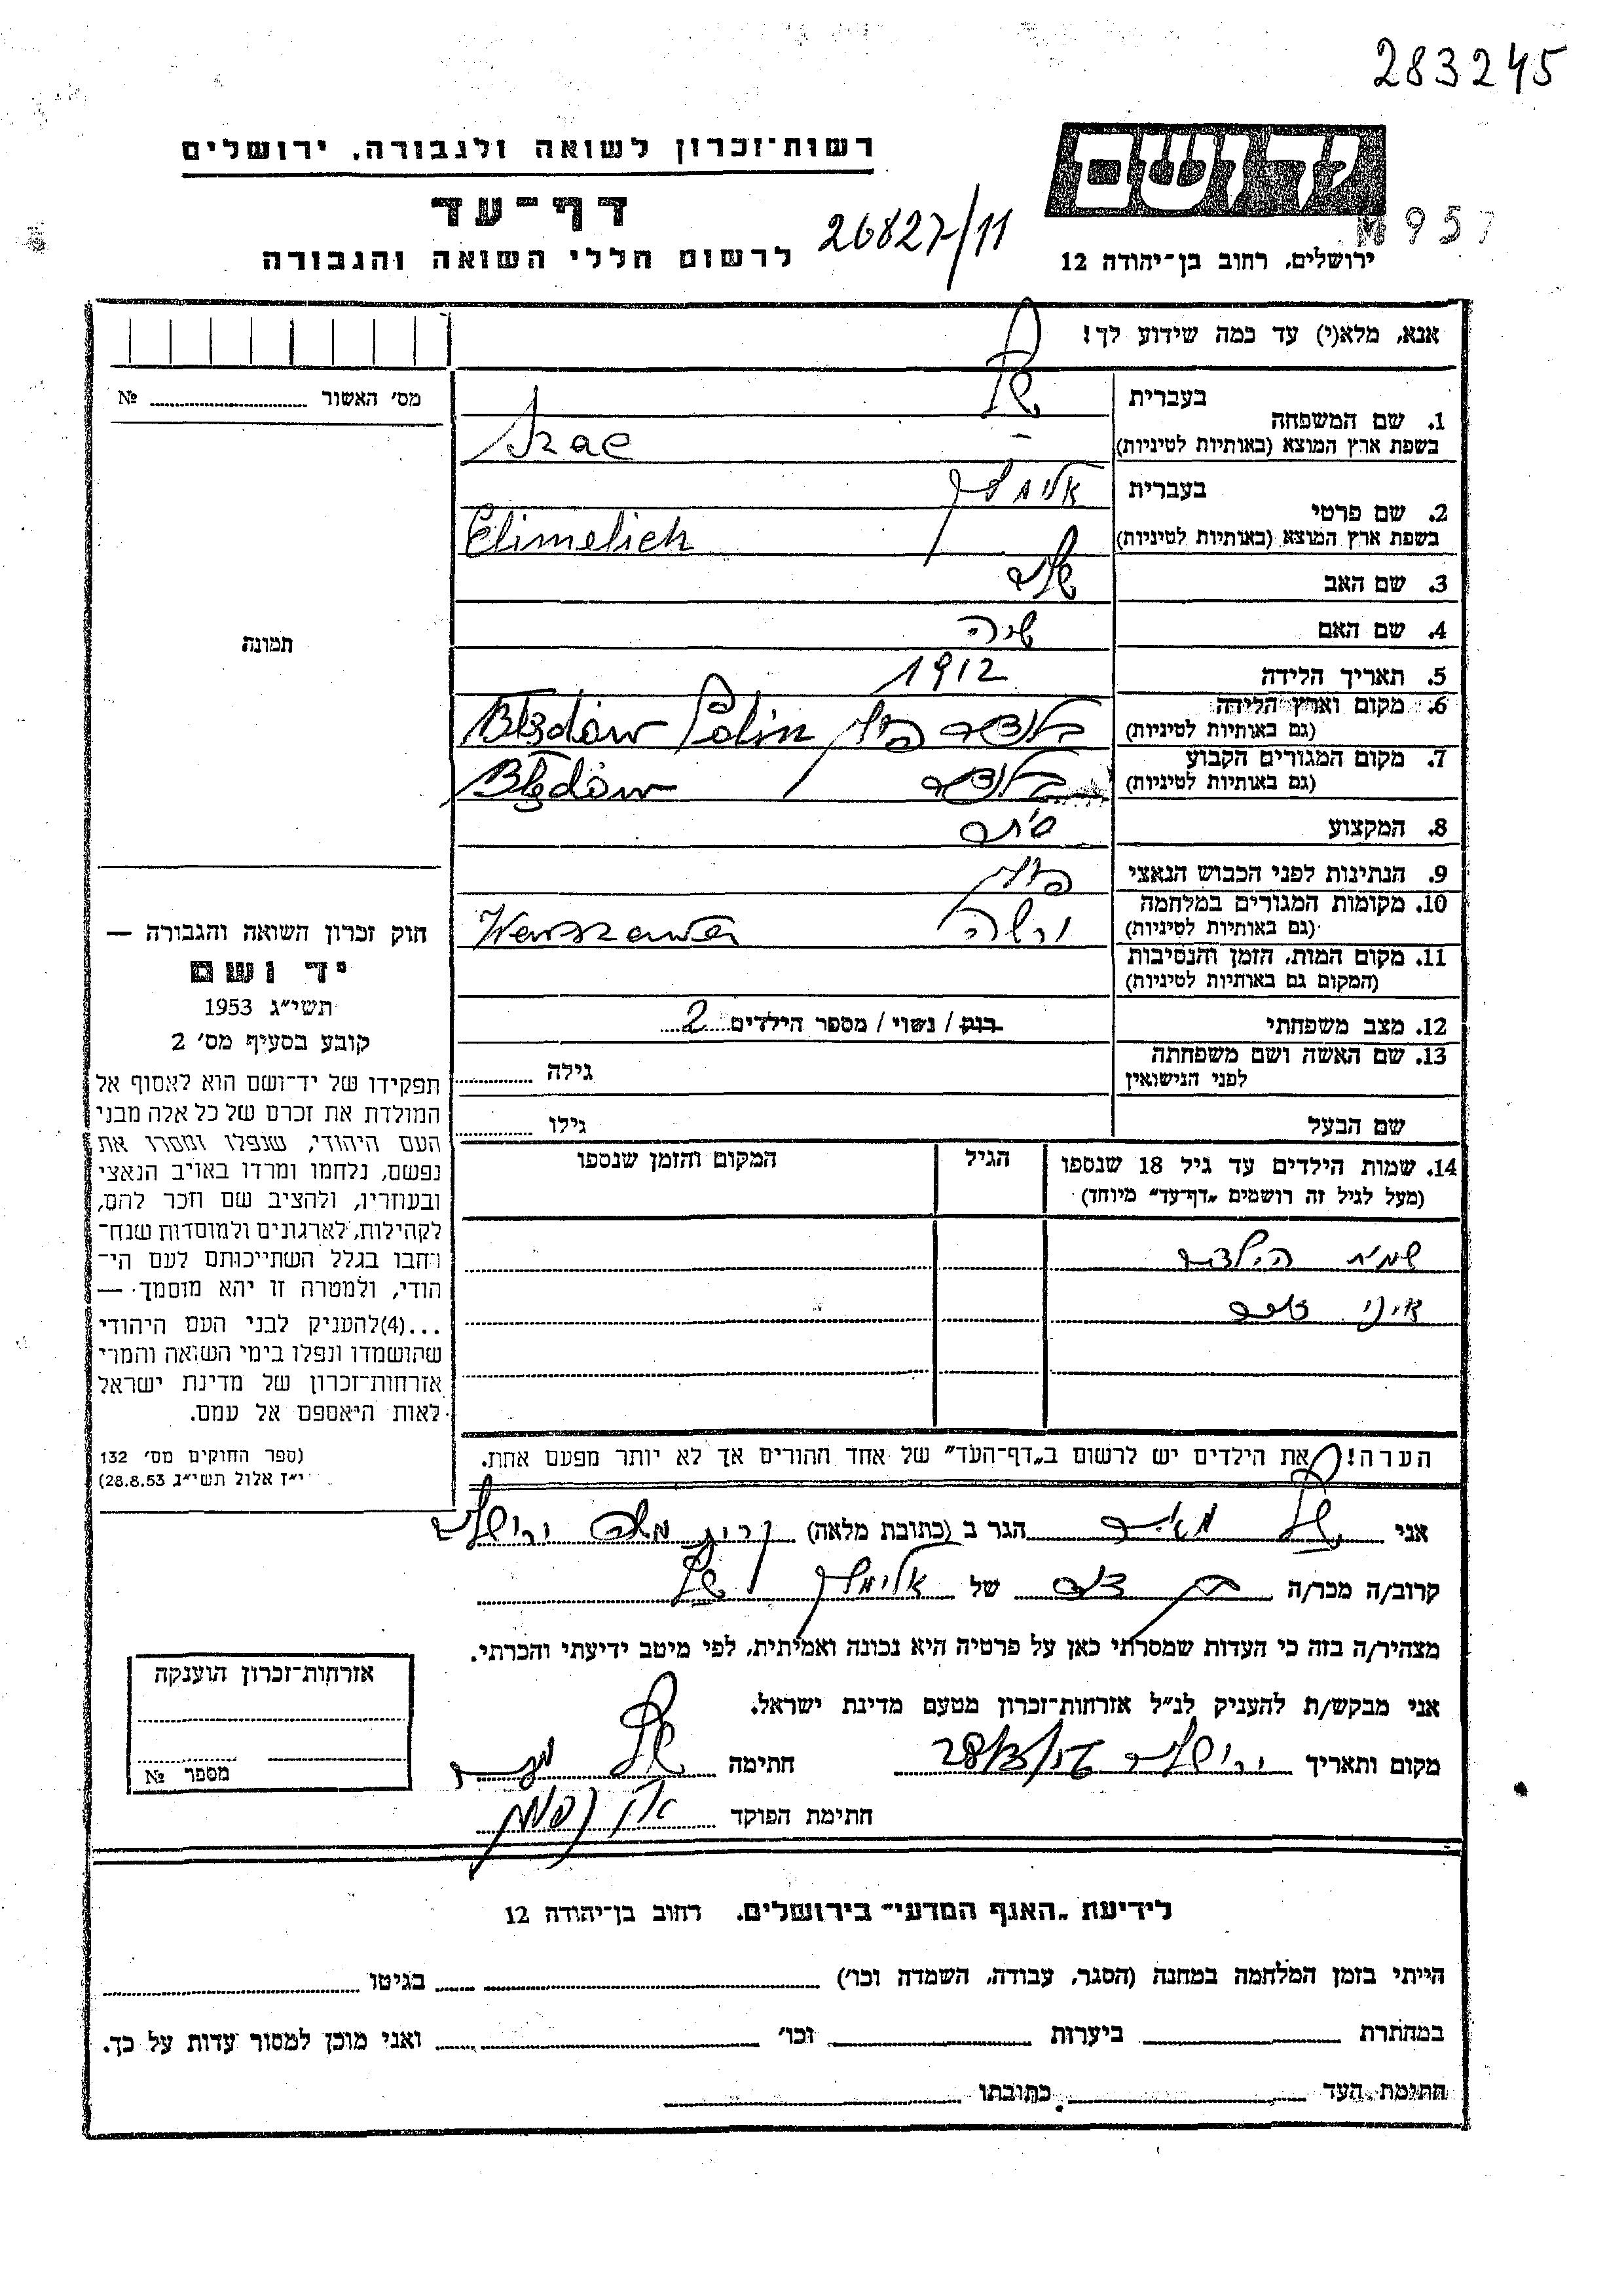 283245
יד ושם
רשות־זכרון לשואה ולגבורה, ירושלים
דף־עד
26827/11
957
לרשום חללי השואה והגבורה
ירושלים, רחוב בן־יהודה 12
אנא, מלא(י) עד כמה שידוע לך!
מס׳ האשור № 
1. שם המשפחה
בעברית
בשפת ארץ המוצא (באותיות לטיניות)
2. שם פרטי
בעברית אלימלך
בשפת ארץ המוצא (באותיות לטיניות) Elimelich
3. שם האב
4. שם האם שרה
5. תאריך הלידה 1912
6. מקום וארץ הלידה
(גם באותיות לטיניות) פולין Błędów Polin
7. מקום המגורים הקבוע
(גם באותיות לטיניות) Błędów
8. המקצוע
9. הנתינות לפני הכבוש הנאצי פולין
10. מקומות המגורים במלחמה
(גם באותיות לטיניות) ורשה Warszawa
11. מקום המות, הזמן והנסיבות
(המקום גם באותיות לטיניות)
12. מצב משפחתי רווק / נשוי / מספר הילדים 2
13. שם האשה ושם משפחתה
לפני הנישואין
גילה
שם הבעל גילו
14. שמות הילדים עד גיל 18 שנספו
(מעל לגיל זה רושמים „דף־עד״ מיוחד)
הגיל
המקום והזמן שנספו
שמות הילדים
איני זוכר
תמונה
חוק זכרון השואה והגבורה —
יד ושם
תשי״ג 1953
קובע בסעיף מס׳ 2
תפקידו של יד־ושם הוא לאסוף אל
המולדת את זכרם של כל אלה מבני
העם היהודי, שנפלו ומסרו את
נפשם, נלחמו ומרדו באויב הנאצי
ובעוזריו, ולהציב שם וזכר להם,
לקהילות, לארגונים ולמוסדות שנח־
רבו בגלל השתייכותם לעם הי־
הודי, ולמטרה זו יהא מוסמך —
...(4)להעניק לבני העם היהודי
שהושמדו ונפלו בימי השואה והמרי
אזרחות־זכרון של מדינת ישראל
לאות היאספם אל עמם.
(ספר החוקים מס׳ 132
י״ז אלול תשי״ג 28.8.53)
הערה! את הילדים יש לרשום ב„דף־העד״ של אחד ההורים אך לא יותר מפעם אחת.
אני מאיר הגר ב (כתובת מלאה) ירושלים
קרוב/ה מכר/ה בן דוד של אלימלך
מצהיר/ה בזה כי העדות שמסרתי כאן על פרטיה היא נכונה ואמיתית, לפי מיטב ידיעתי והכרתי.
אני מבקש/ת להעניק לנ״ל אזרחות־זכרון מטעם מדינת ישראל.
מקום ותאריך ירושלים חתימה
חתימת הפוקד
אזרחות־זכרון הוענקה
מספר №
לידיעת „האגף המדעי״ בירושלים, רחוב בן־יהודה 12
הייתי בזמן המלחמה במחנה (הסגר, עבודה, השמדה וכו׳) בגיטו
במחתרת ביערות וכו׳ ואני מוכן למסור עדות על כך.
חתימת העד כתובתו